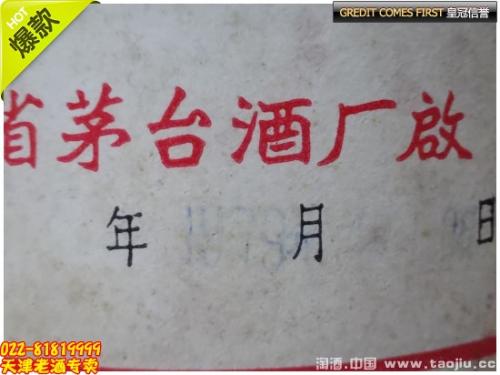 爆款
GREDIT COMES FIRST 皇冠信誉
省茅台酒厂啟
年 月 日
022-81819999
天津老酒专卖
淘酒.中国 www.taojiu.cc